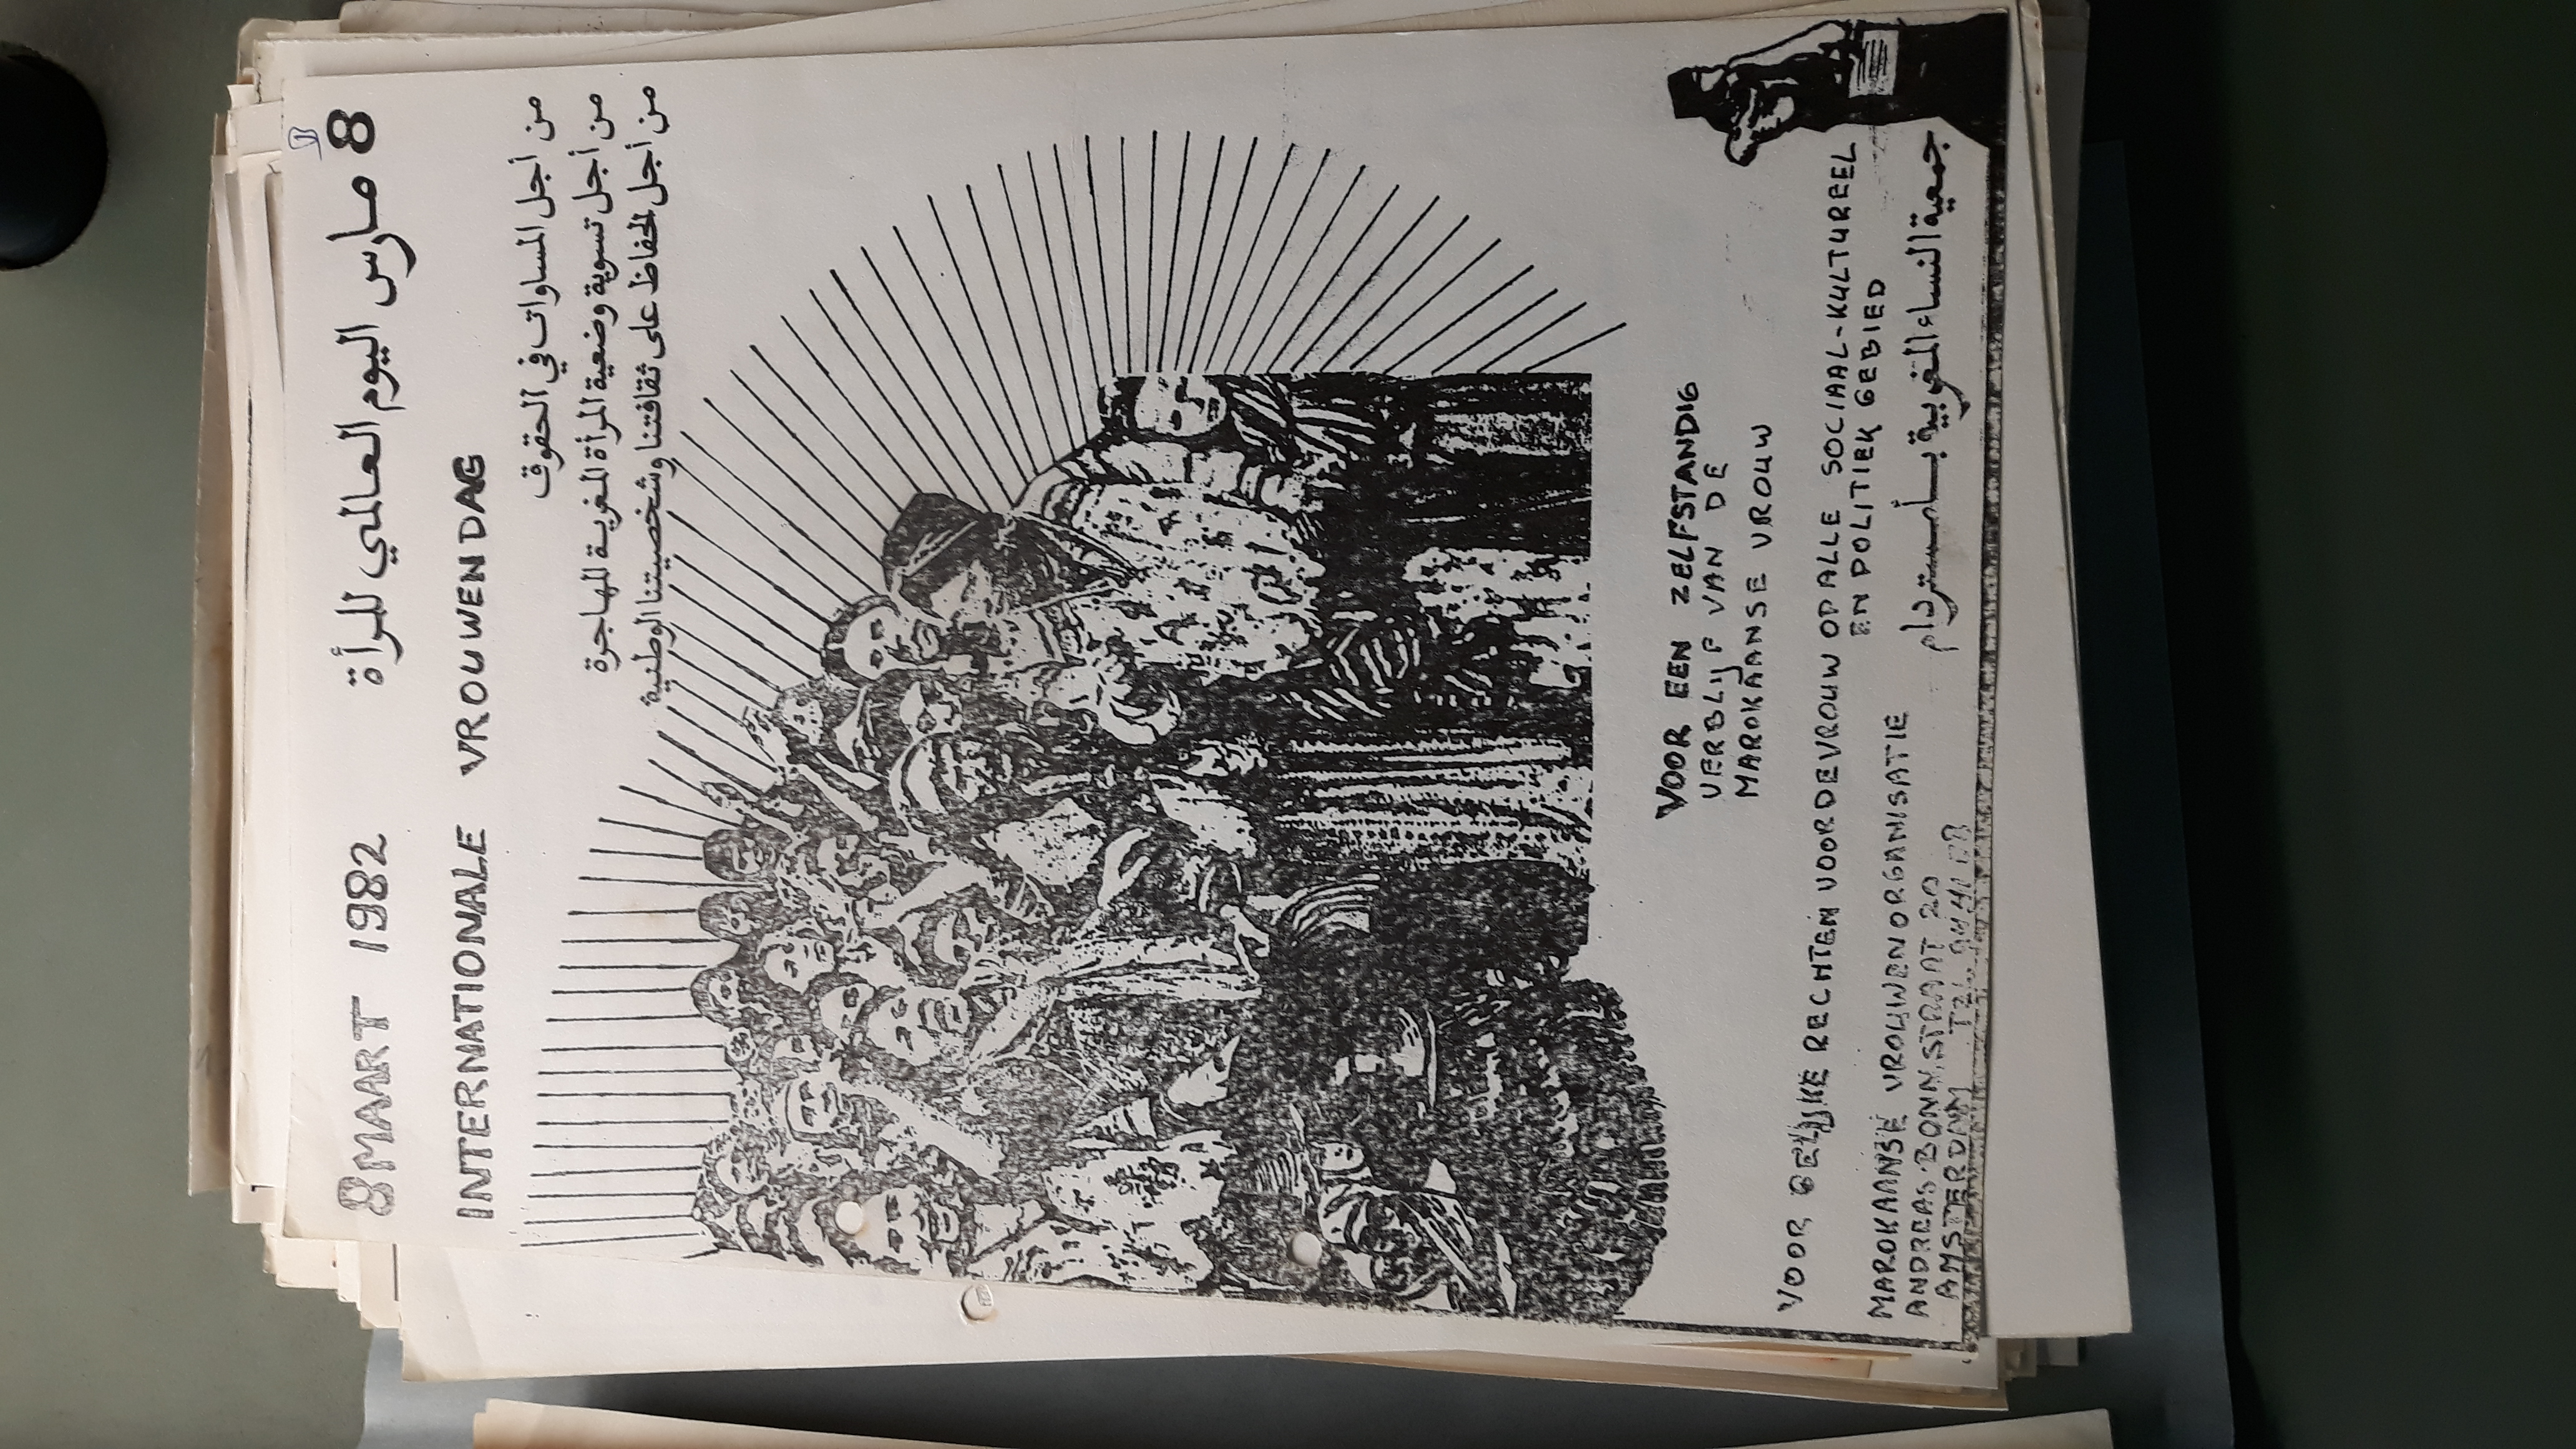 8 MAART 1982
8 مارس اليوم العالمي للمرأة
INTERNATIONALE VROUWENDAG
من أجل المساوات في الحقوق
من أجل تسوية وضعية المرأة المغربية المهاجرة
من أجل الحفاظ على ثقافتنا وشخصيتنا الوطنية
VOOR EEN ZELFSTANDIG
VERBLIJF VAN DE
MAROKAANSE VROUW
VOOR GELIJKE RECHTEN VOOR DE VROUW OP ALLE SOCIAAL-KULTUREEL
EN POLITIEK GEBIED
MAROKAANSE VROUWENORGANISATIE
ANDREAS BONN STRAAT 20
AMSTERDAM TEL
جمعية النساء المغربية بأمستردام